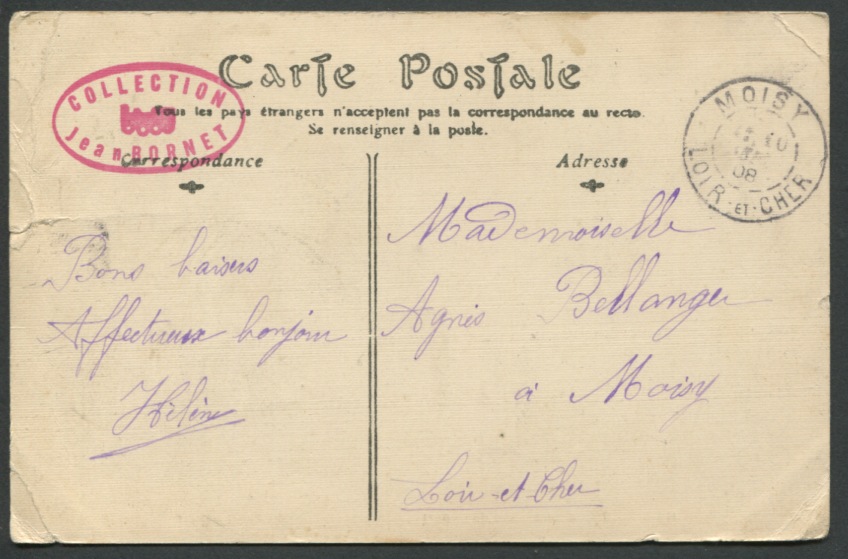 Carte Postale
COLLECTION
Jean BORNET
Tous les pays étrangers n'acceptent pas la correspondance au recto.
Se renseigner à la poste.
Correspondance
Adresse
MOISY
10
08
LOIR-ET-CHER
Bons baisers
Affectueux bonjour
Hélène
Mademoiselle
Agnès Bellanger
à Moisy
Loir-et-Cher